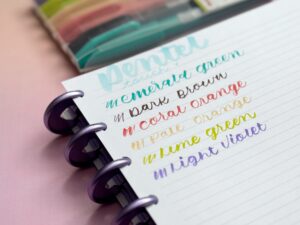 Pentel
Emerald Green
Dark Brown
Coral Orange
Pale Orange
Lime green
Light Violet